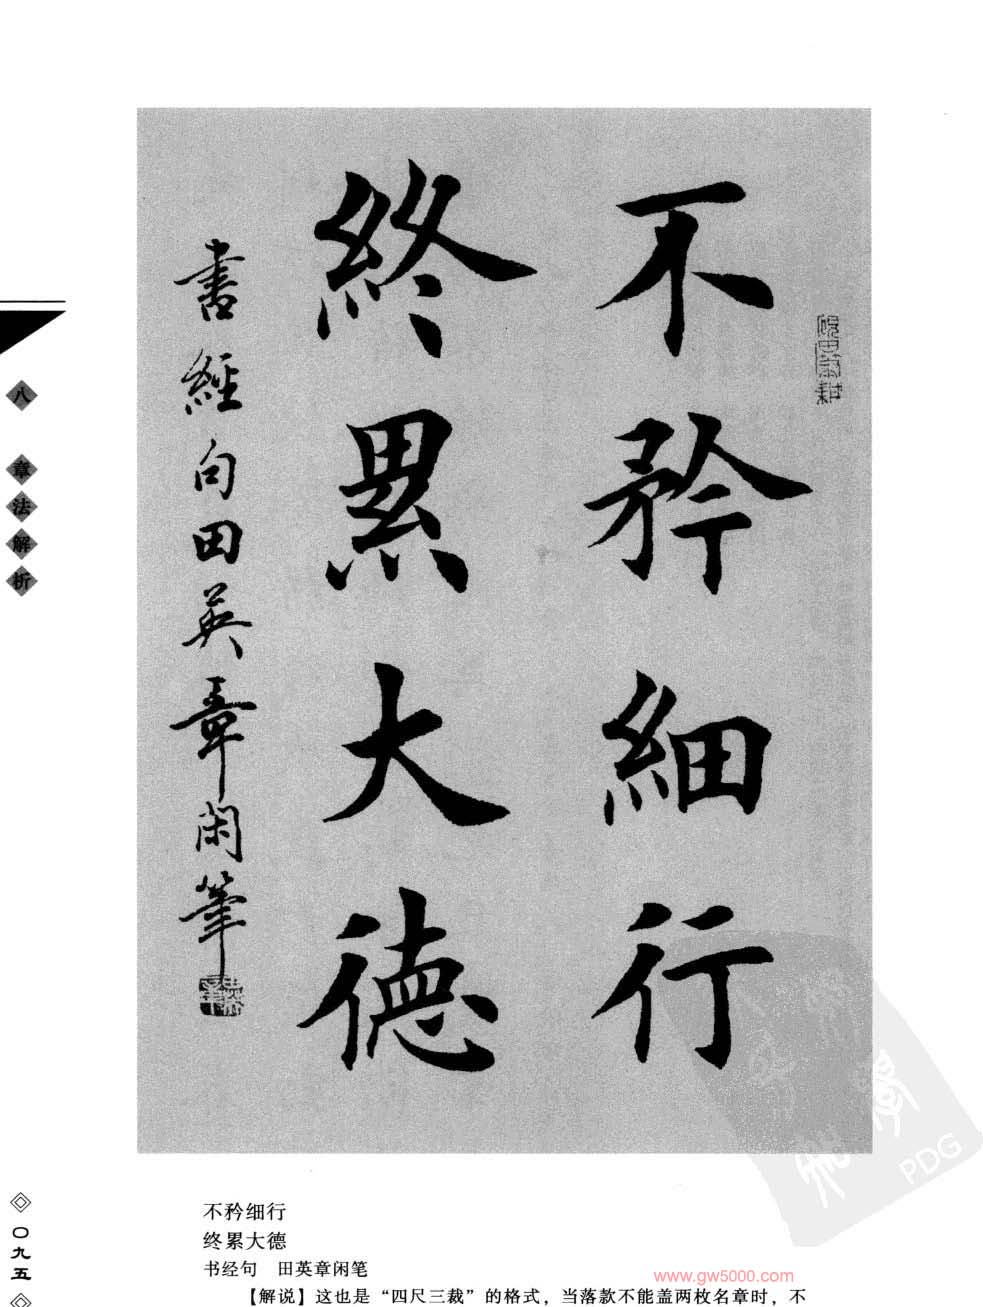 不矜細行
終累大德
書經句田英章閑筆
八 章法解析
〇九五
不矜细行
终累大德
书经句 田英章闲笔
【解说】这也是“四尺三裁”的格式，当落款不能盖两枚名章时，不
www.gw5000.com
PDG